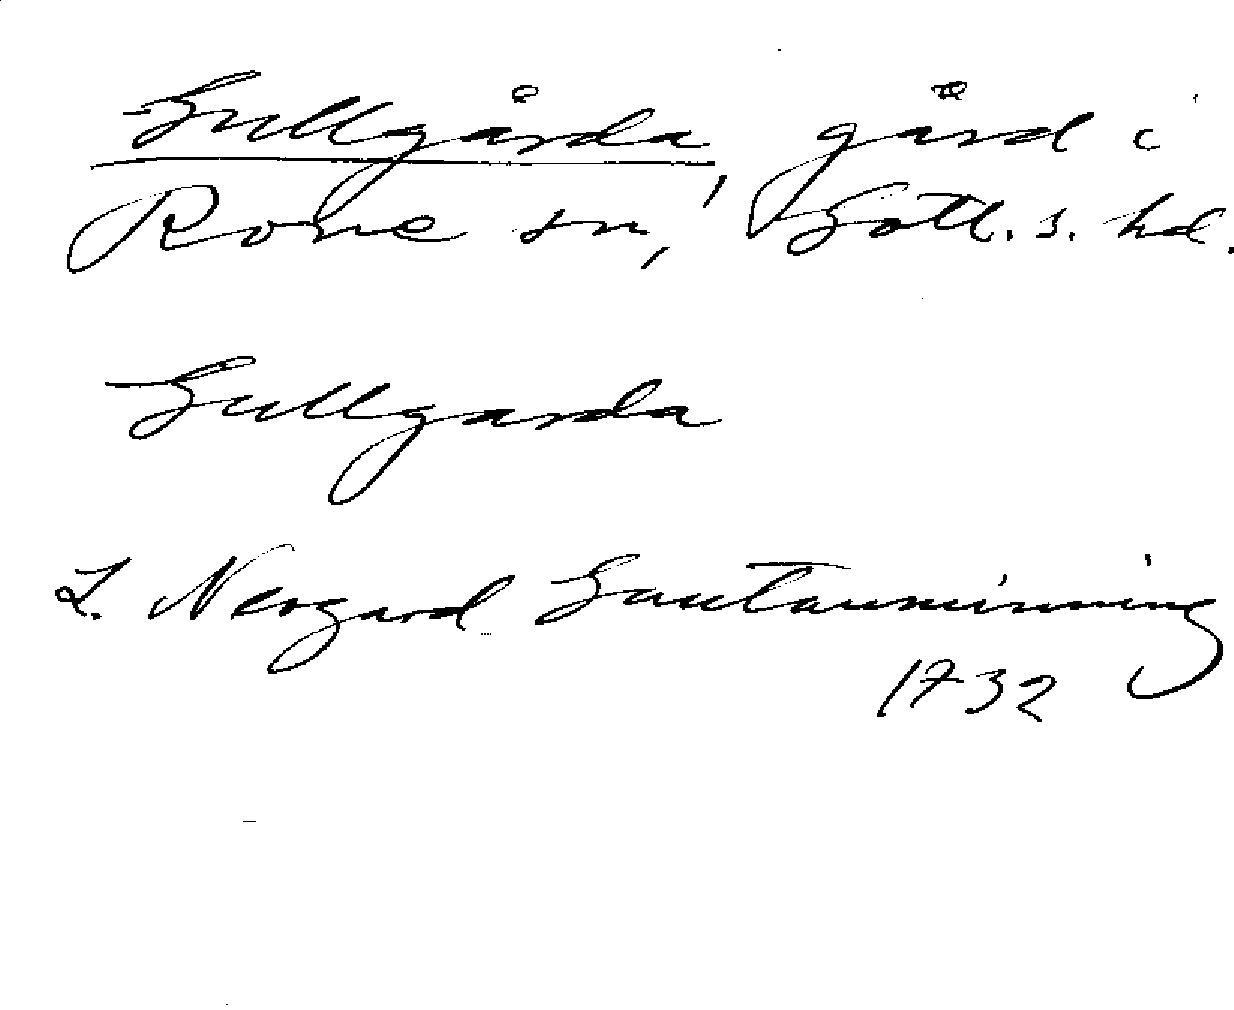 Gullgårda, gård i
Rone sn, Gotl. s. hd.
Gullgarda
L. Neogard Gautauminning
1732